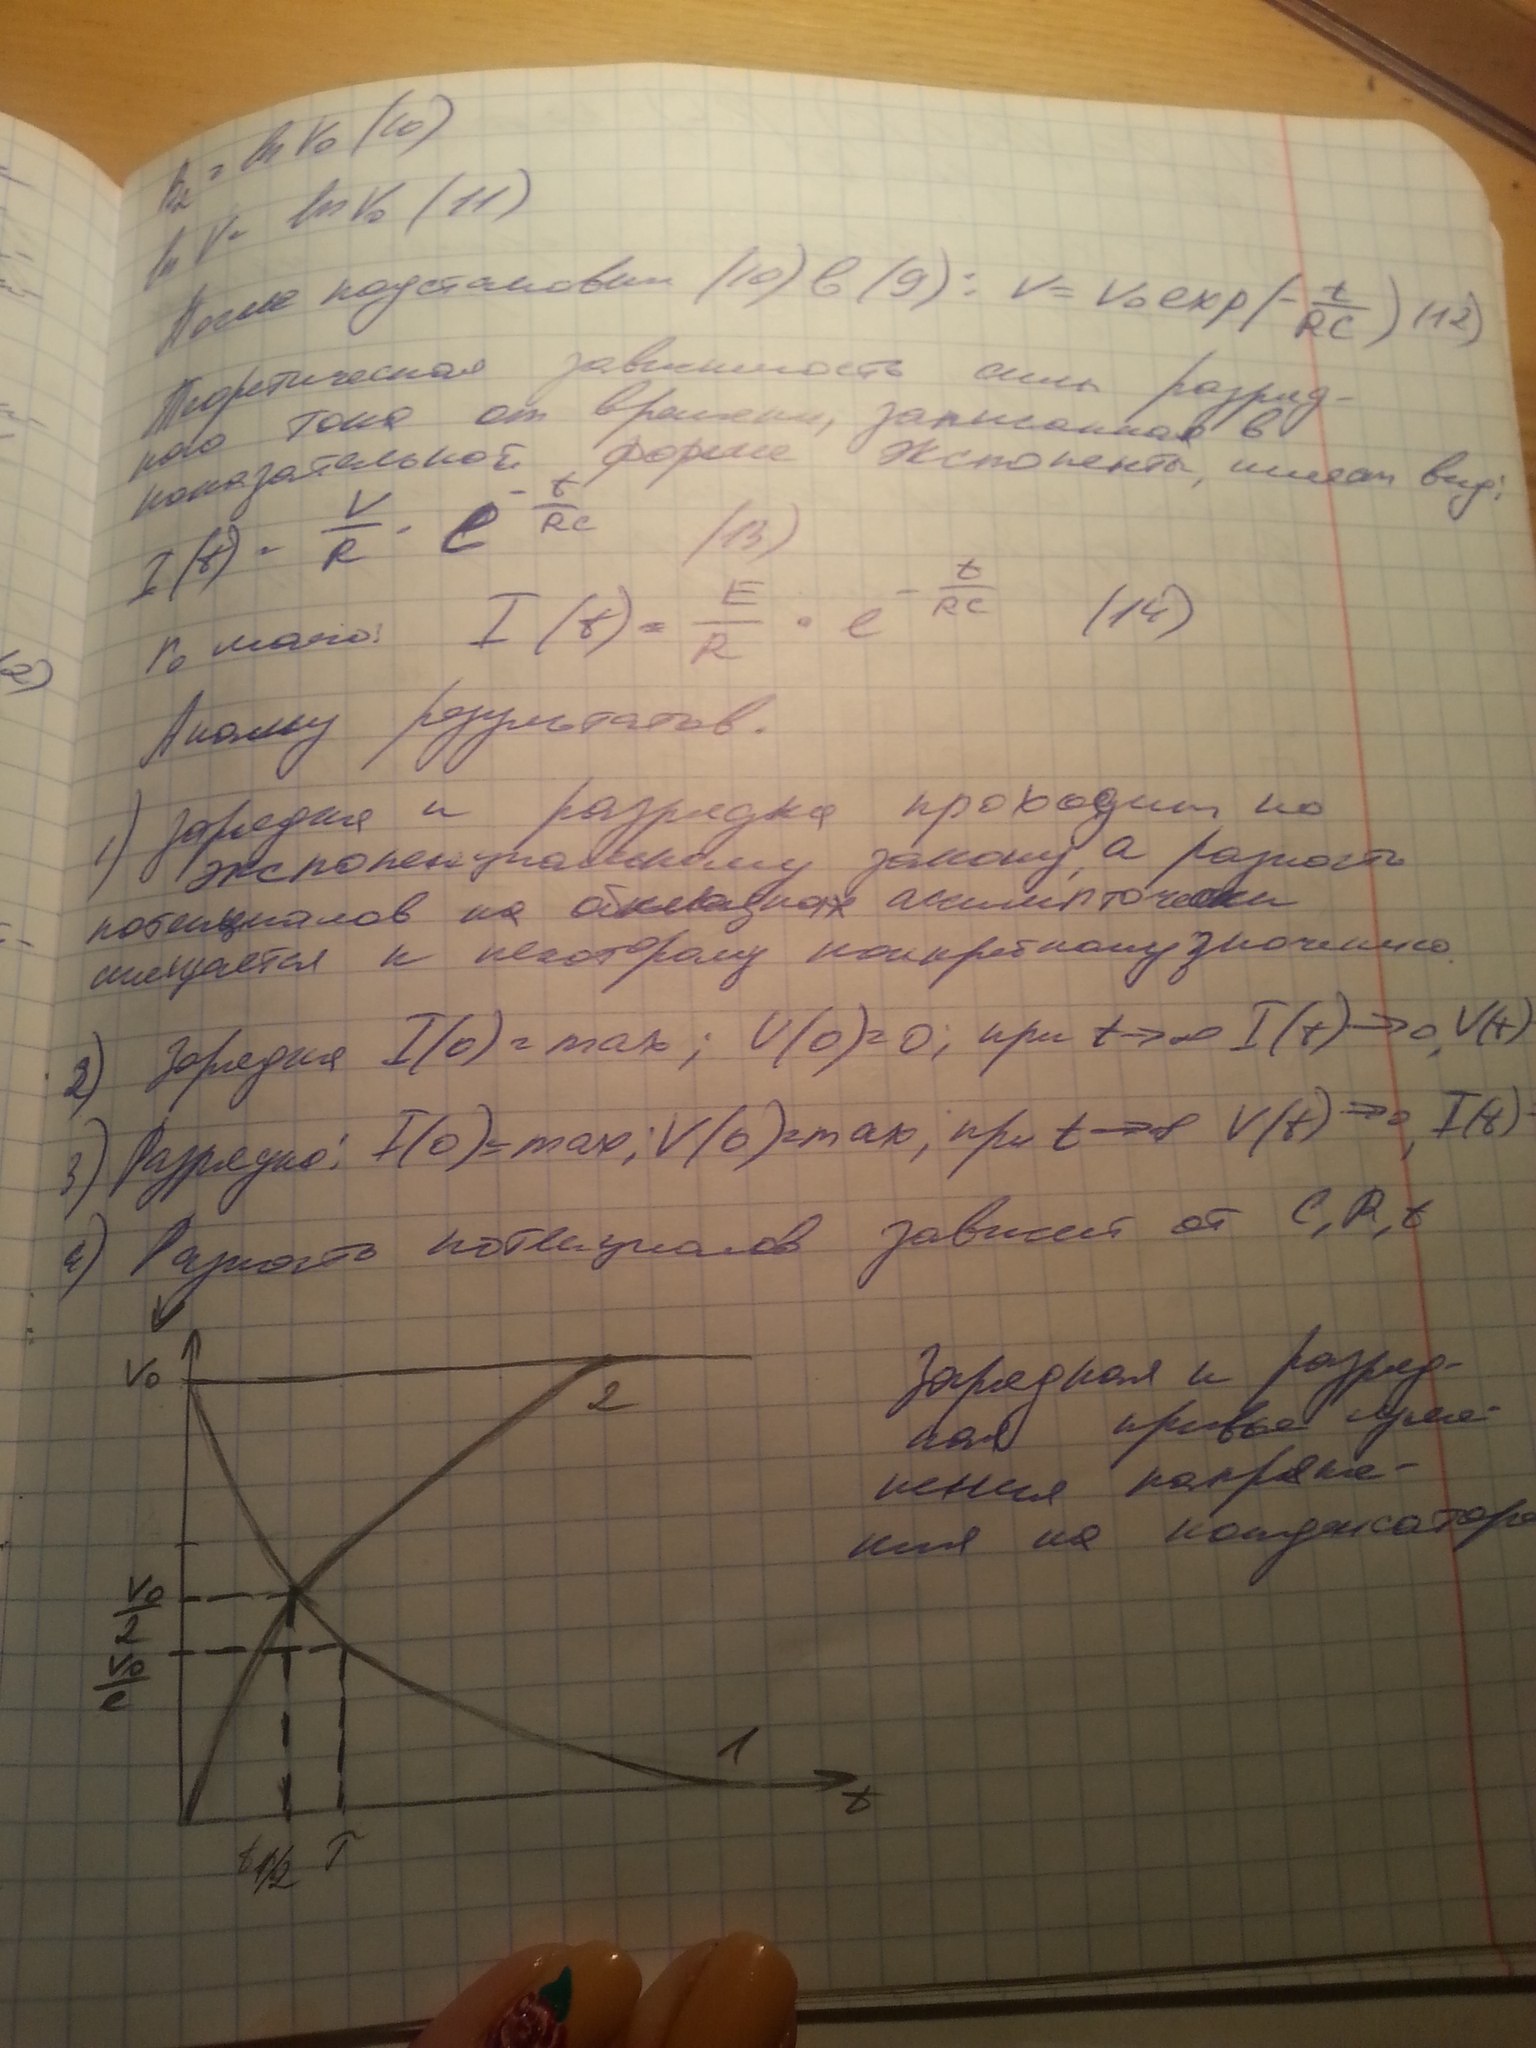 B₂ = ln V₀ (10)
ln V = ln V₀ (11)
После подстановки (10) в (9): V = V₀ exp(-t/RC) (12)
Теоретическая зависимость силы разряд-
ного тока от времени, записанная в
показательной форме экспоненты, имеет вид:
I(t) = V/R · e^(-t/RC) (13)
r₀ мало: I(t) = E/R · e^(-t/RC) (14)
Анализ результатов.
1) Зарядка и разрядка проходит по
экспоненциальному закону, а разность
потенциалов на обкладках асимптотически
смещается к некоторому конкретному значению.
2) Зарядка I(0) = max; V(0) = 0; при t → ∞ I(t) → 0, V(t)
3) Разрядка: I(0) = max; V(0) = max, при t → ∞ V(t) → 0, I(t) →
4) Разность потенциалов зависит от C, R, t
V₀
2
Зарядная и разряд-
ная кривые изме-
нения напряже-
ния на конденсаторе
V₀/2
V₀/e
1
t
t 1/2 T